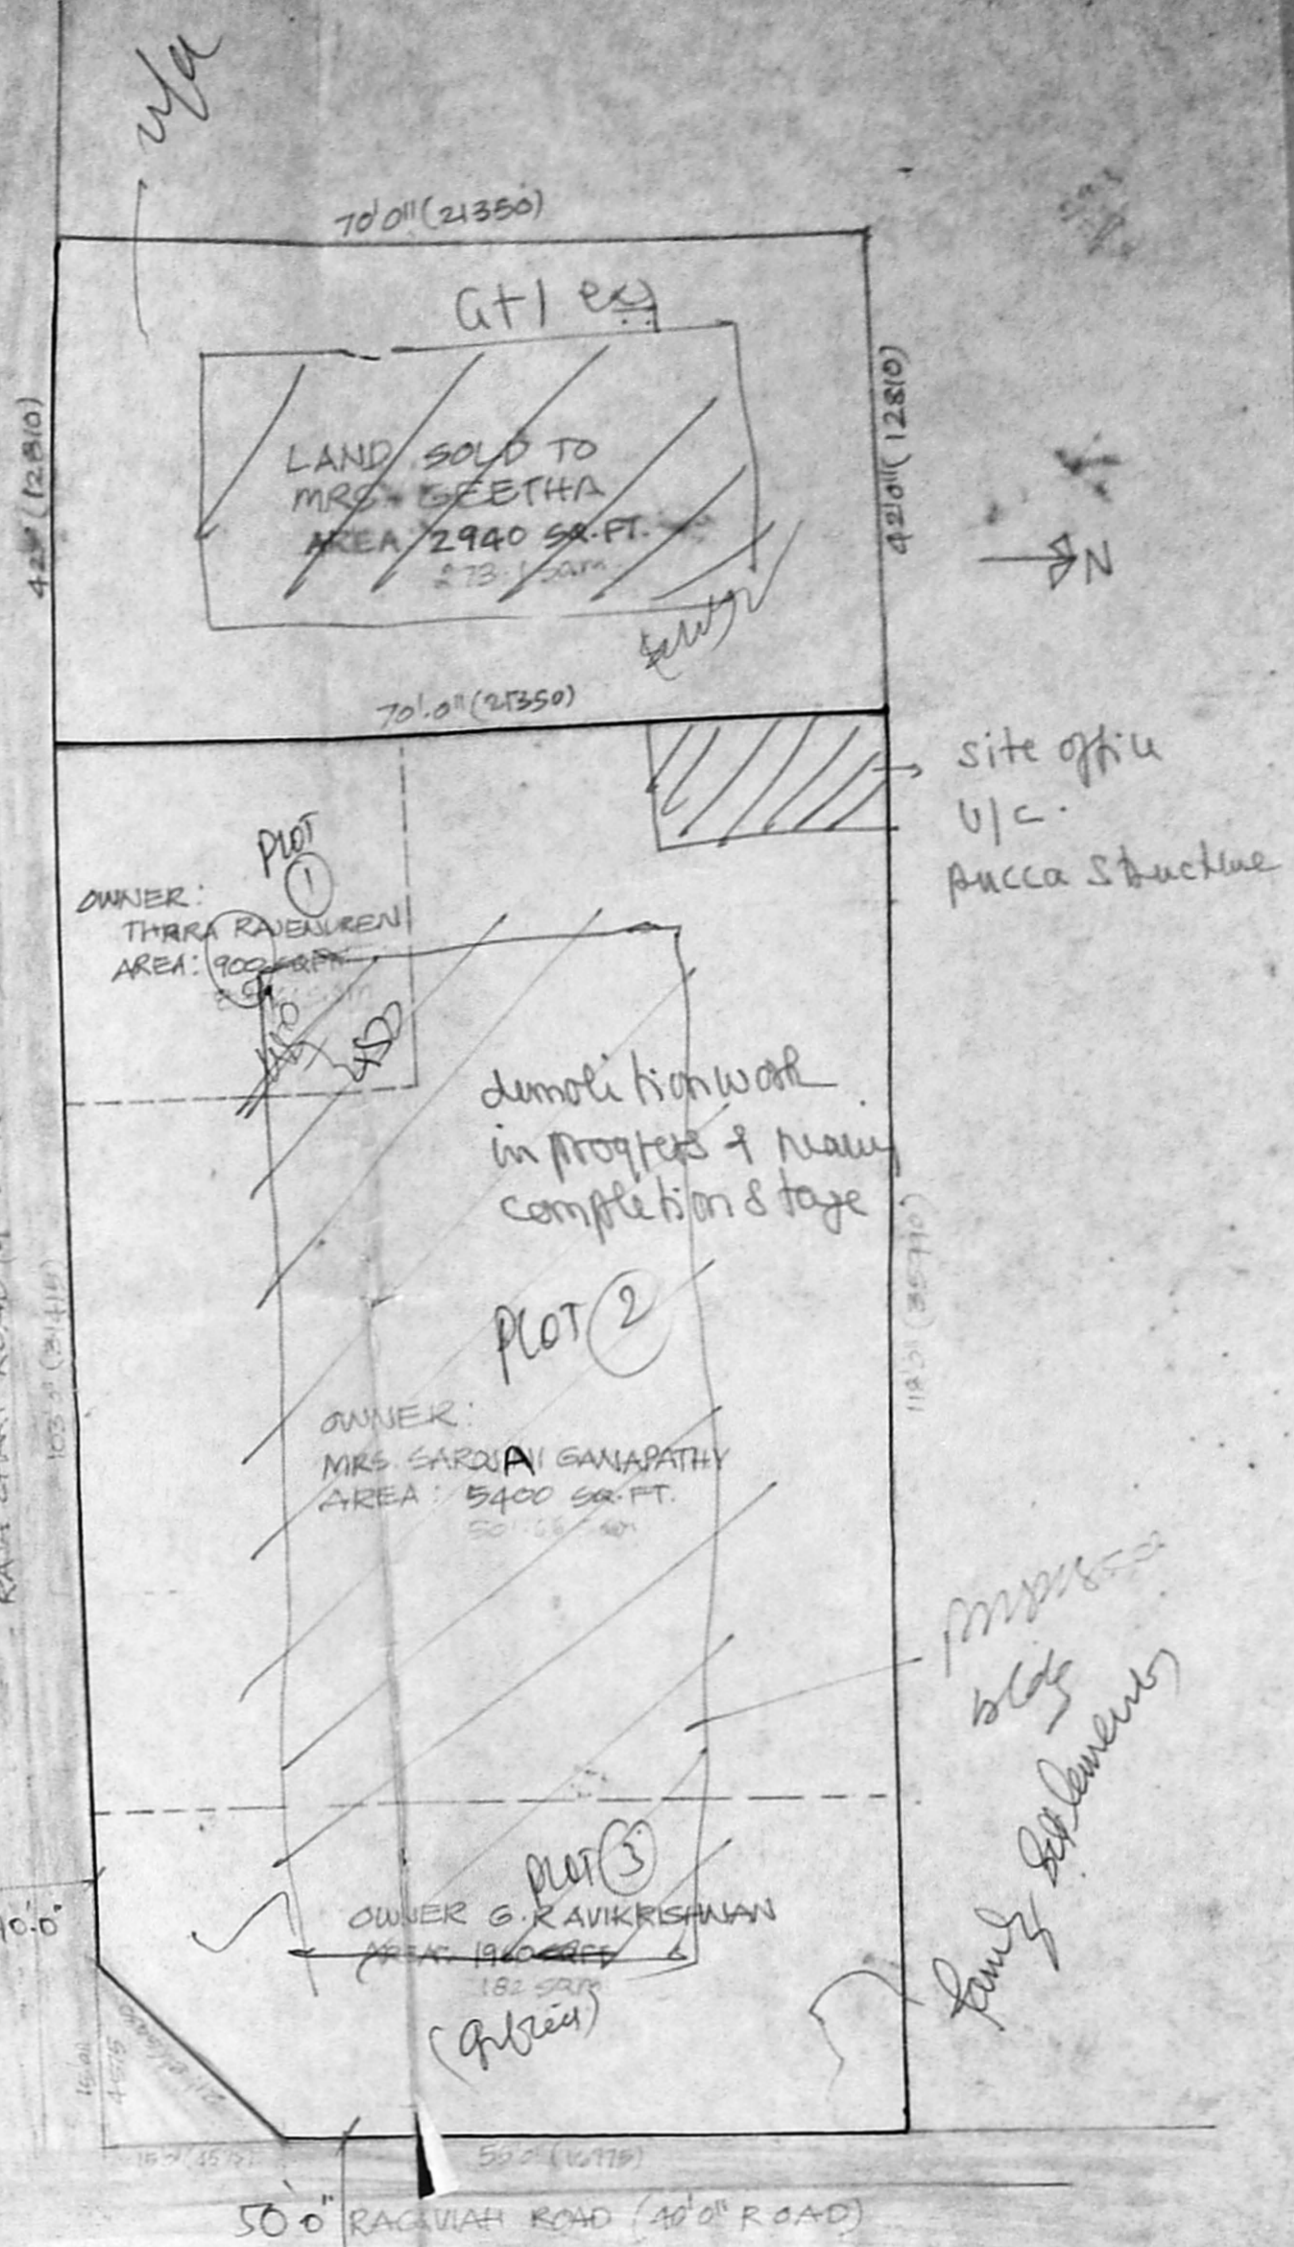 n/a
70'0" (21350)
G+1
42'0" (12810)
42'0" (12810)
LAND SOLD TO
MRS. GEETHA
AREA 2940 SQ.FT.
N
70'.0" (21350)
site office
U/C.
pucca structure
PLOT
1
OWNER:
THARA RAJENDREN
AREA: 900 SQFT
450
demolition work
in progress & nearing
completion stage
PLOT 2
118'3" (35770)
103'3" (31415)
OWNER:
MRS. SAROJANI GANAPATHY
AREA: 5400 SQ.FT.
bldg
Family Settlements
PLOT 3
OWNER G. RAVIKRISHNAN
AREA: 1960 SQFT
182 sqm
15'0"
4575
15'0" (4575)
55'0" (16975)
50'0" RAGAVIAH ROAD (40'0" ROAD)